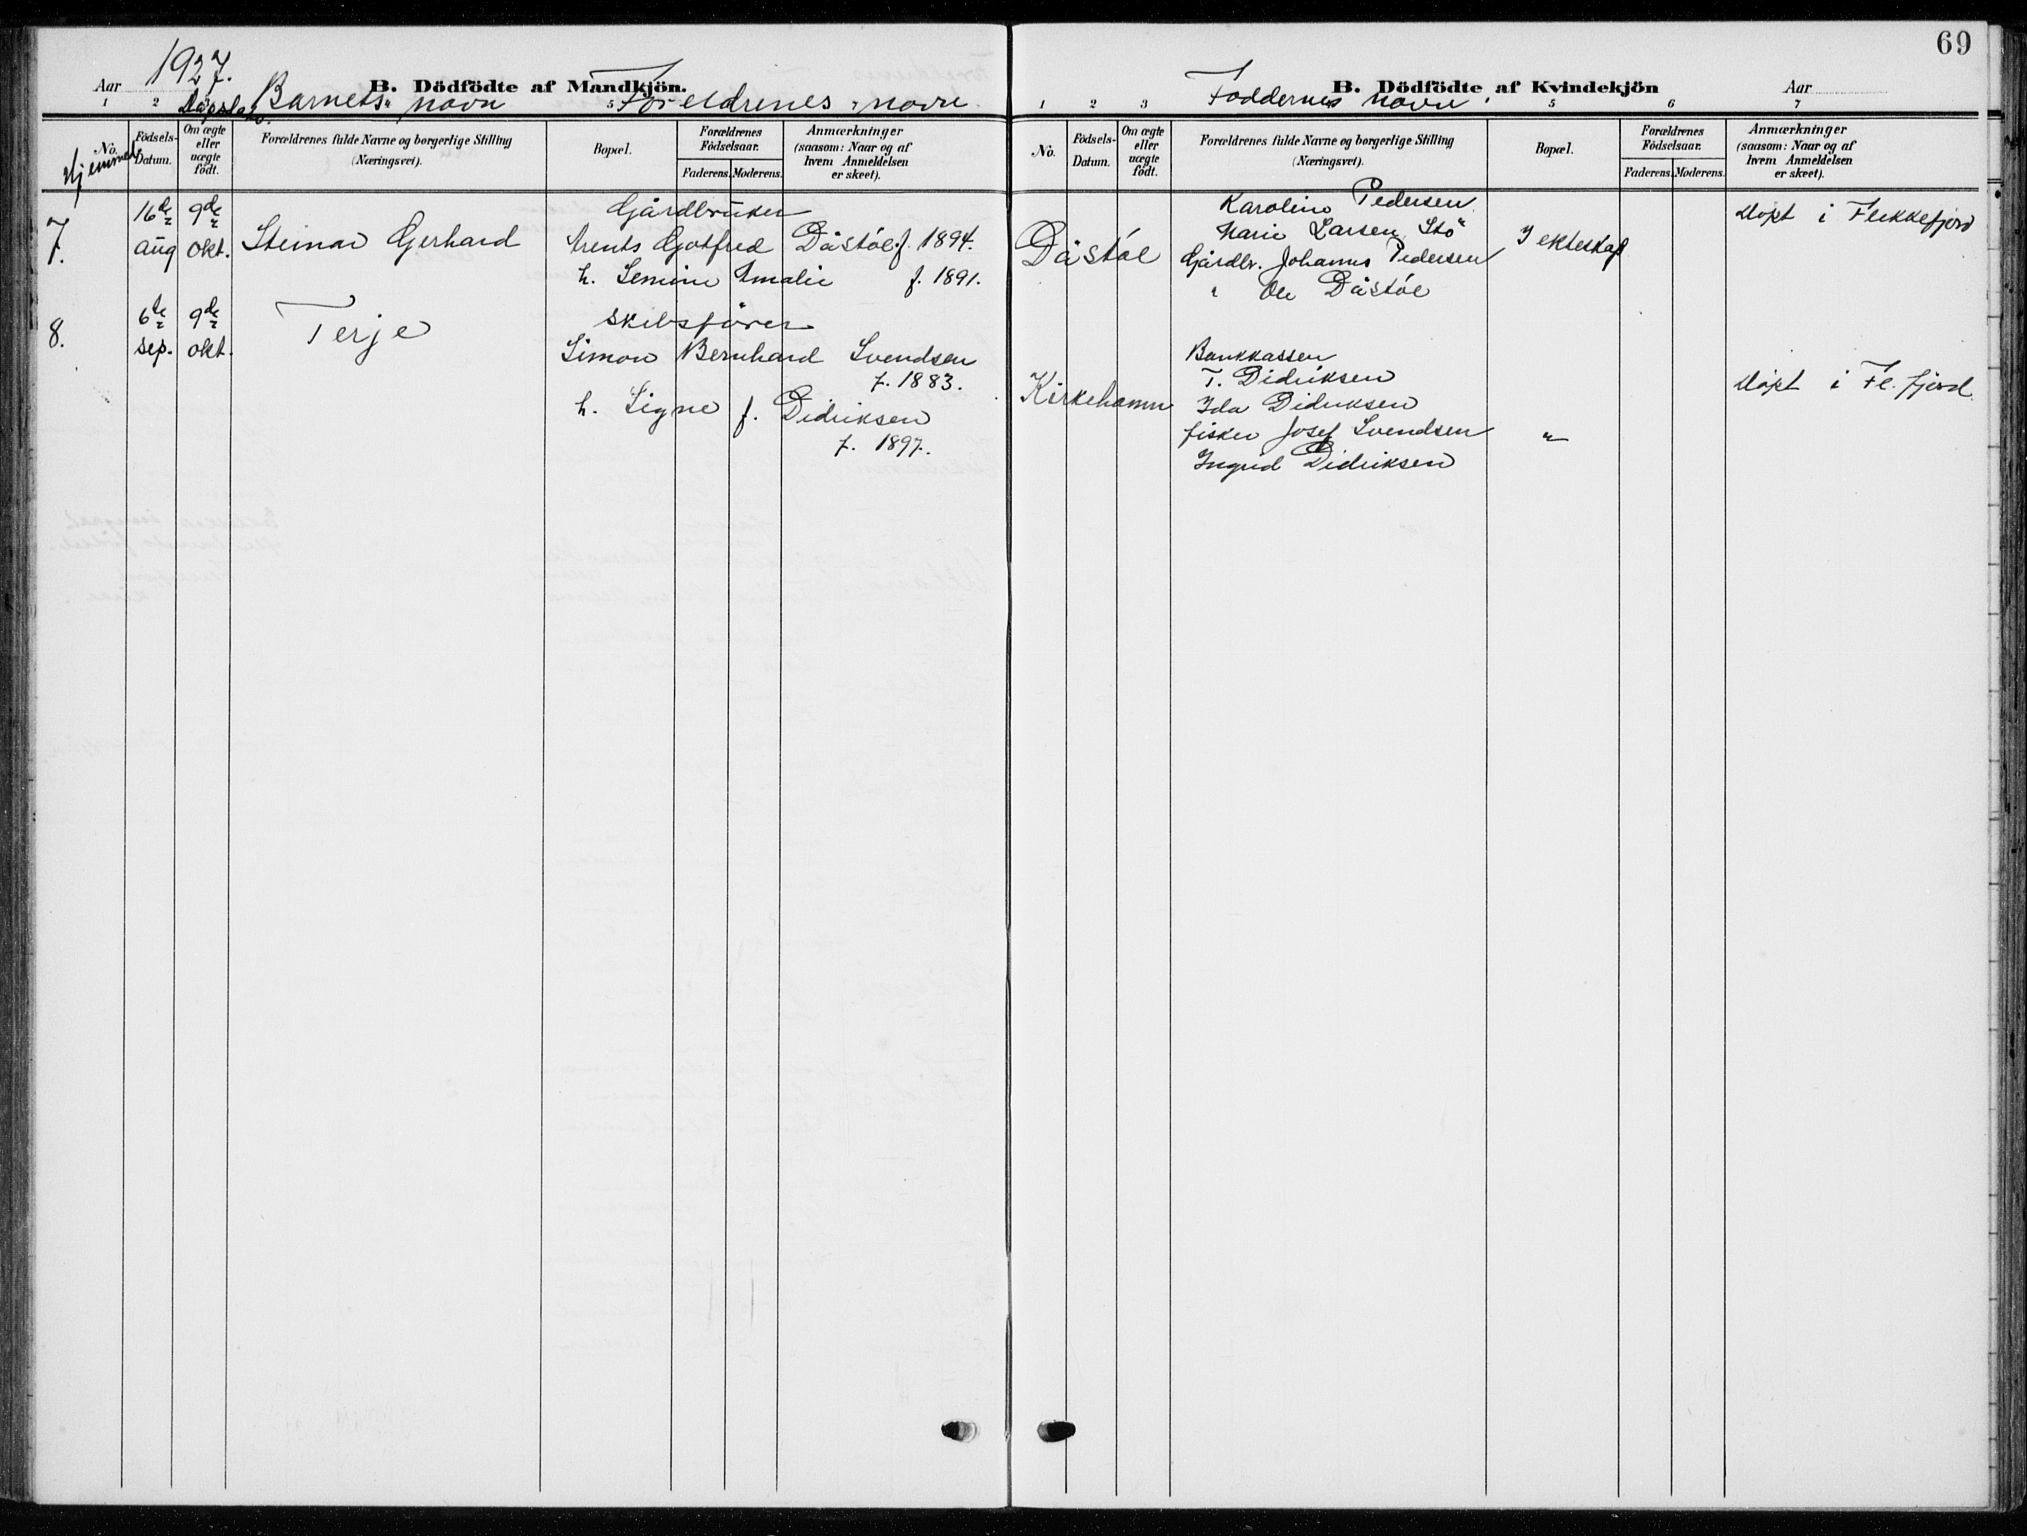 69
Aar 1927.
B. Dödfödte af Mandkjön.
Dåpsdag. Barnets navn Foreldrenes navn
1 2 3 5
No. Hjemmed.
Födsels-Datum.
Om ægte eller uægte födt.
Forældrenes fulde Navne og borgerlige Stilling (Næringsvei).
Bopæl.
Forældrenes Födselsaar.
Faderens. Moderens.
Anmærkninger (saasom: Naar og af hvem Anmeldelsen er skeet).
7. 16de aug 9de okt. Steinar Gerhard
Gårdbruker
Arents Gotfred Dåstøl f. 1894.
h. Semine Amalie f. 1891.
8. 6te sep. 9de okt. Terje
Skibsfører
Simon Bernhard Svendsen
f. 1883.
h. Signe f. Didriksen
f. 1897.
B. Dödfödte af Kvindekjön
Aar
Faddernes navn.
1 2 3 5 6 7
No.
Födsels-Datum.
Om ægte eller uægte födt.
Forældrenes fulde Navne og borgerlige Stilling (Næringsvei).
Bopæl.
Forældrenes Födselsaar.
Faderens. Moderens.
Anmærkninger (saasom: Naar og af hvem Anmeldelsen er skeet).
Dåstøl
Karoline Pedersen
Marie Larsen Stø
Gårdbr. Johannes Pedersen
" Ole Dåstøl
I ekteskap
Døpt i Flekkefjord
Kirkehamn
Bankkasser
T. Didriksen
Ida Didriksen
fisker Josef Svendsen
Ingrid Didriksen
"
Døpt i Fl.fjord.